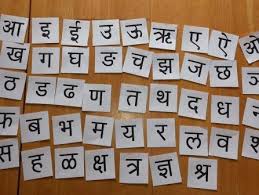 आ इ ई उ ऊ ऋ ए ऐ ओ
ख ग घ ङ च झ ज छ
ठ ड ढ ण त थ द ध न
फ ब भ म य र ल व श
स ह ळ क्ष त्र ज्ञ श्र